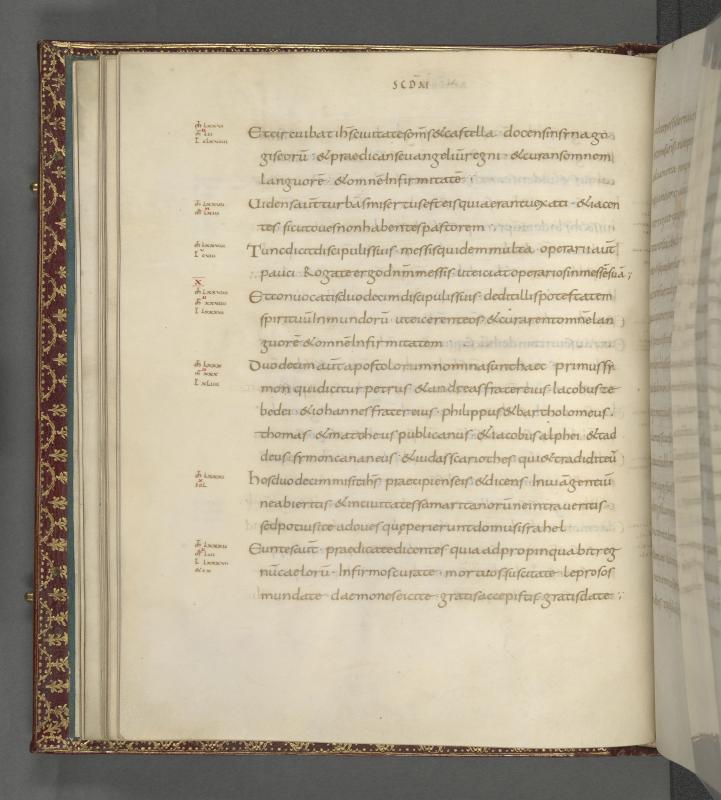 SCD̄M
Et circuibat ih̄s ciuitates om̄s & castella · docens insynago
gis eorū · & praedicans euangeliū regni · & curans omnem
languorē · & omnē Infirmitatē ·
Uidens aut̄ turbas misertus est eis quia erant uexati · & iacen
tes sicut oues non habentes pastorem ·
Tunc dicit discipulis suis · messis quidem multa · operarii aut̄
pauci · Rogate ergo dn̄m messis · ut eiciat operarios in messē suā ;
X
Et conuocatis duodecim discipulis suis · dedit illis potestatem
spirituū Inmundorū · ut eicerent eos · & curarent omnē lan
guorē & omnē Infirmitatem
Duodecim aut̄ apostolorum nomina sunt haec · primus sy
mon qui dicitur petrus · & andreas frater eius · Iacobus ze
bedei · & iohannes frater eius · philippus & bartholomeus ·
thomas · & mattheus publicanus · & iacobus alphei · & tad
deus · symon cananeus · & iudas scariothes · qui & tradidit
hos duodecim misit ih̄s · praecipiens eis & dicens · In uiā gentiū
ne abieritis · & in ciuitates samaritanorū ne intraueritis ·
sed potius ite ad oues quę perierunt domus israhel
Euntes aut̄ · praedicate dicentes · quia adpropinquabit reg
nū caelorū · Infirmos curate · mortuos suscitate · leprosos
mundate · daemones eicite · gratis accepistis gratis date ·